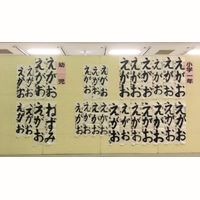 小学一年
えがお
えがお
えがお
えがお
えがお
えがお
えがお
えがお
えがお
えがお
えがお
えがお
えがお
えがお
幼児
えがお
えがお
えがお
ねずみ
えがお
えがお